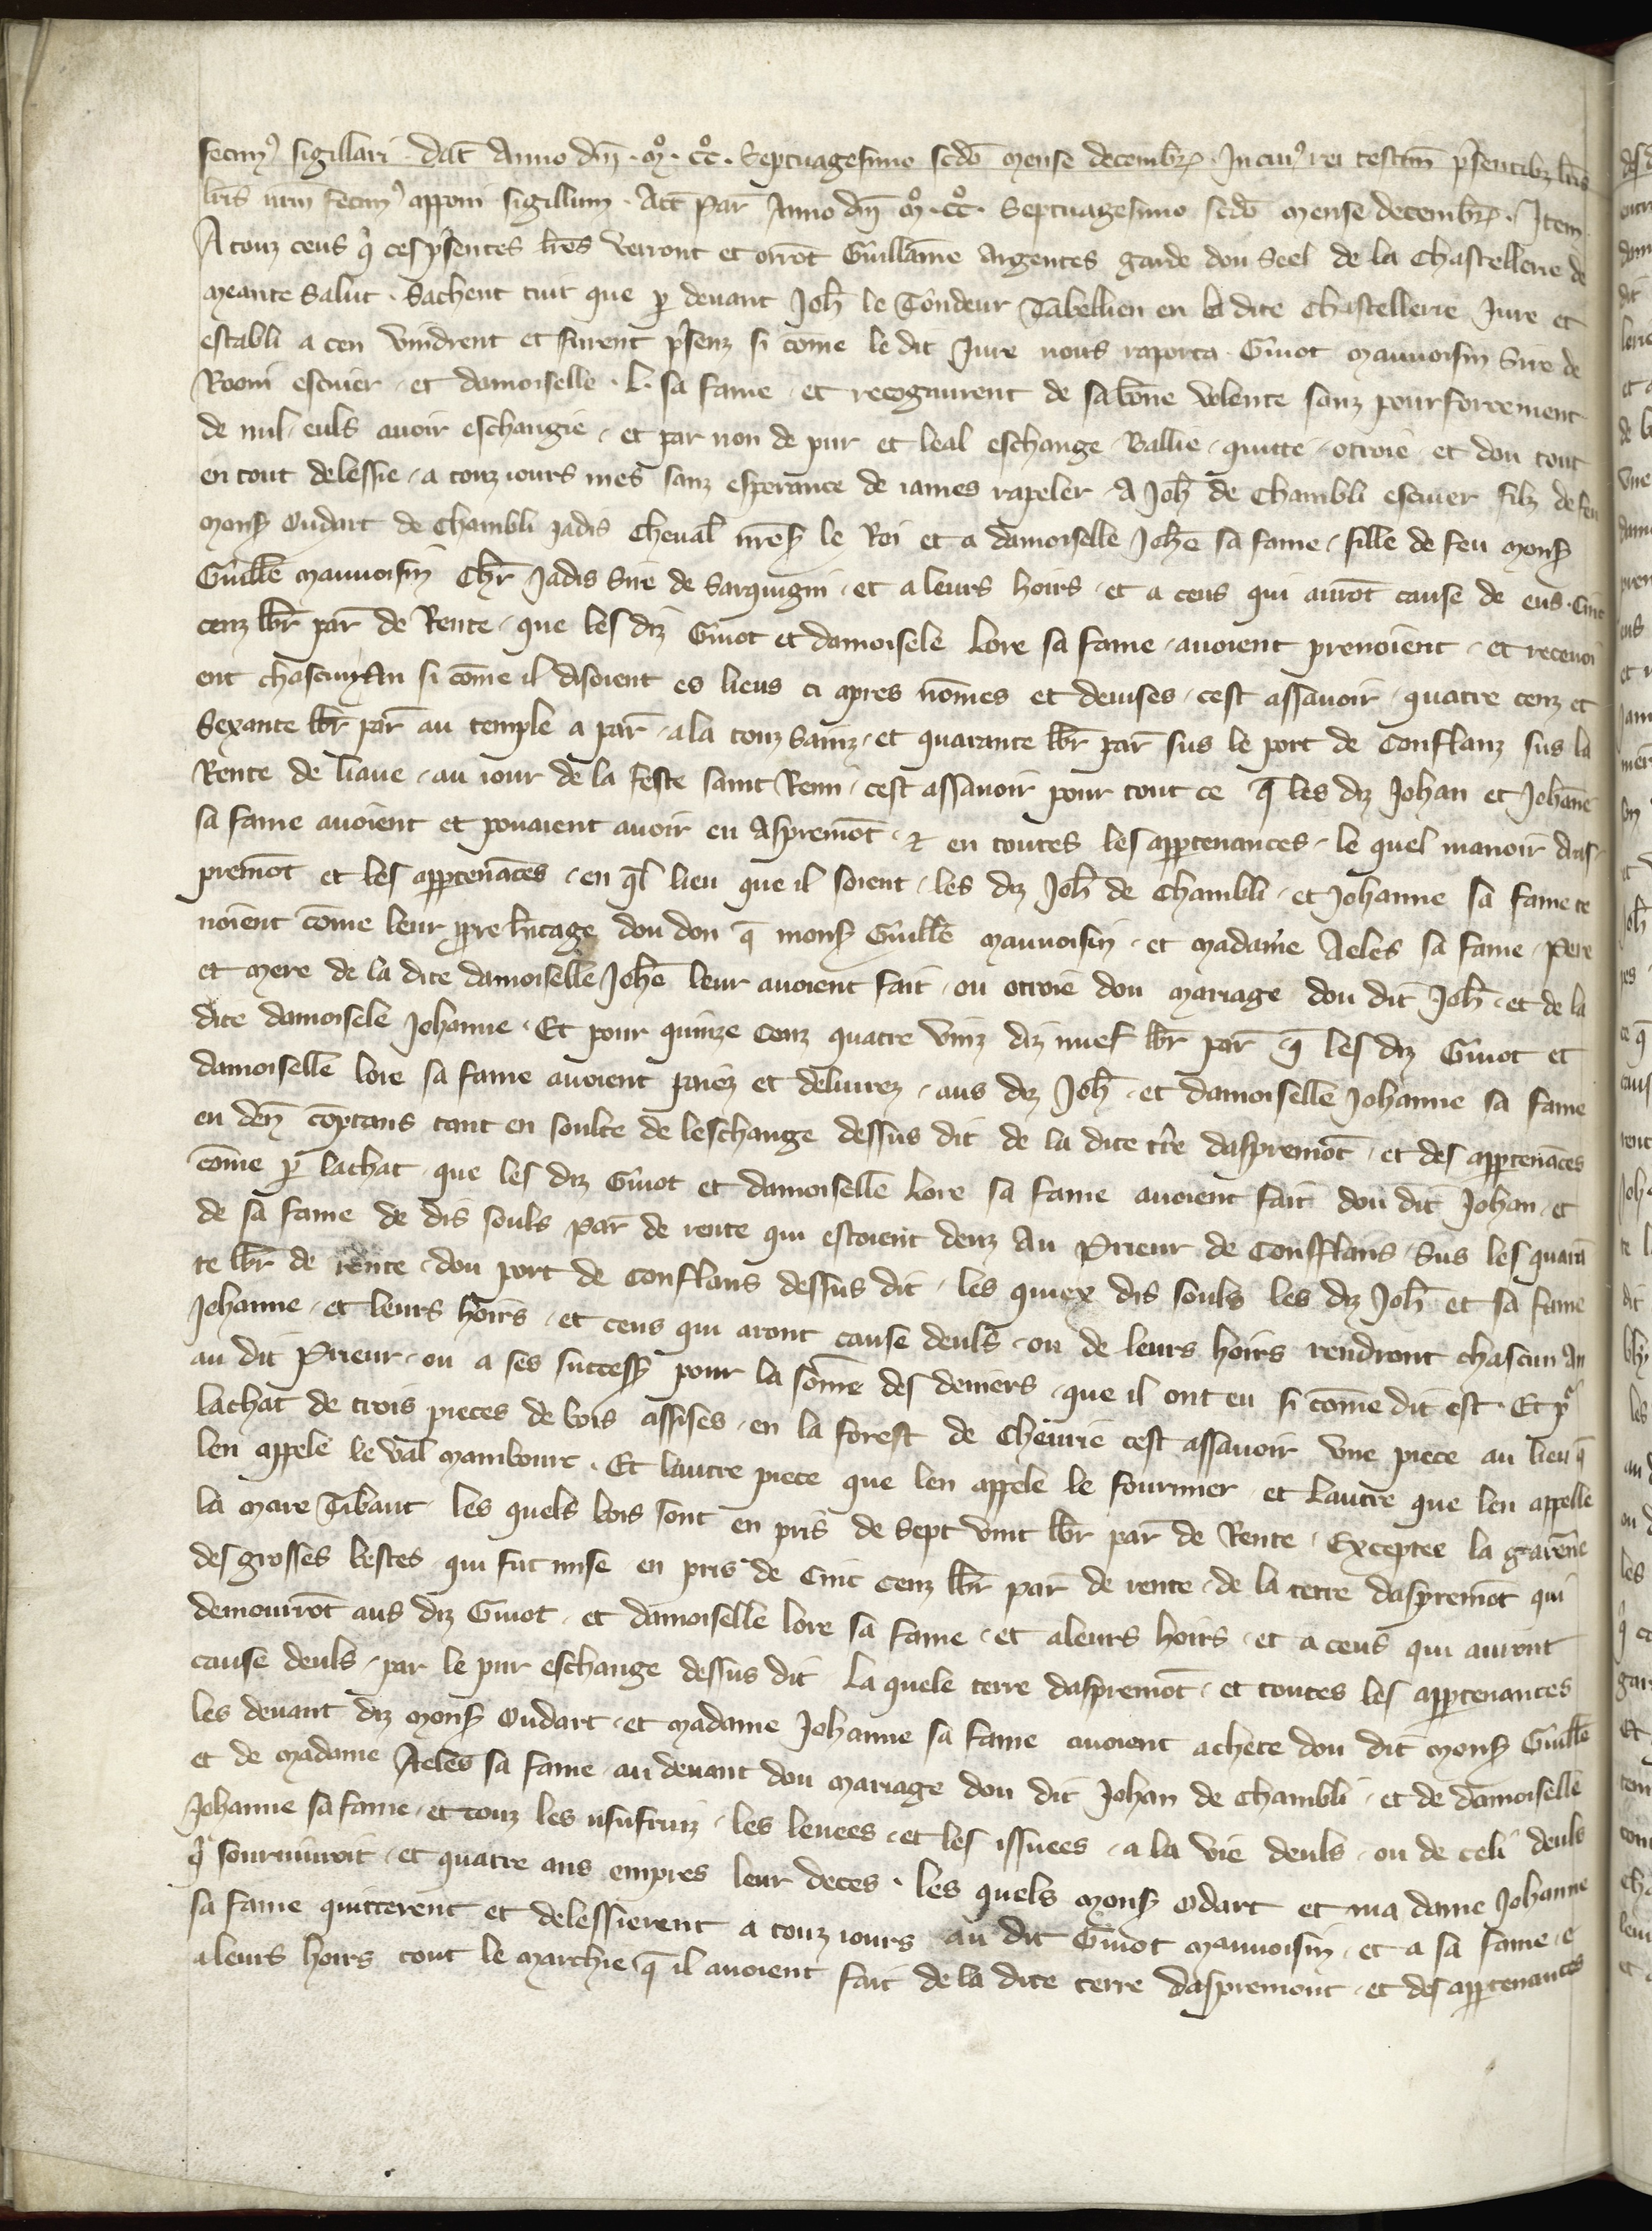 fecim⁹ sigillari. Dat̄ Anno dn̄i .mͦ. ccͦ. Septuagesimo scd̄o mense decembr̄. In cui⁹ rei testim̄ p̄sentibꝫ lr̄is
lr̄is nr̄m fecim⁹ apponi sigillum. Act̄ par̄ Anno dn̄i mͦ. ccͦ. Septuagesimo scd̄o mense decembr̄. Item.
A touz ceus qͥ ces p̄sentes lr̄es verront et orrōt Guillame Argentes garde dou Seel de la Chastellerie de
Meante Salut. Sachent tuit que ꝑ devant Joh̄ le Tondeur Tabellien en la dite Chastellerie Jure et
establi a cen vindrent et furent p̄senz si cōme le dit Jure nous raporta Guiot mauuoisin Sire de
Rooni escuier et damoiselle .L. sa fame et recognurent de sa bōne volente sanz pourforcement
de nul euls auoir eschangie et par non de pur et leal eschange Ballie quitte otroie et dou tout
en tout delessie a touz iours mes sanz esperance de iames rapeler A Joh̄ de Chambli escuier filz de feu
monsꝭ Oudart de Chambli jadis Cheual̄ nr̄esꝭ le Roi et a damoiselle Joh̄e sa fame fille de feu monsꝭ
Guill̄e mauuoisin Chr̄ Jadis Sire de Sarquigni et a leurs hoirs et a ceus qui aurōt cause de eus Cinc
cenz lb̄r par̄ de Rente que les diz Guiot et damoisele Lore sa fame auoient prenoient et receuoi
ent chascun An si cōme il disoient es lieus ci apres nōmes et deuises cest assauoir quatre cenz et
Sexante lb̄r par̄ au temple a par̄ a la touz Sainz et quarante lb̄r par̄ sus le port de Conflanz sus la
Rente de liaue au iour de la feste saint Remi cest assauoir pour tout ce q̄ les diz Johan et Johane
sa fame auoient et pouaient auoir en Aspremōt et en toutes les apꝑtenances le quel manoir das
premōt et les apꝑtenāces en q̄l lieu que il soient les diz Joh̄ de Chambli et Johanne sa fame te
noient cōme leur ꝓpre h̄itage dou don q̄ monsꝭ Guill̄e mauuoisin et madame Aeles sa fame pere
et mere de la dite damoiselle Joh̄e leur auoient fait ou otroie dou mariage dou dit Joh̄ et de la
dite damoisele Johanne. Et pour quinze cenz quatre vinz diz nuef lb̄r par̄ q̄ les diz Guiot et
damoiselle lore sa fame auoient paiez et deliurez aus diz Joh̄ et damoiselle Johanne sa fame
en den̄ cōptans tant en soulte de leschange dessus dit de la dite tr̄e daspremōt et des apꝑtenāces
cōme ꝑ lachat que les diz Guiot et damoiselle Lore sa fame auoient fait dou dit Johan et
de sa fame de dis souls par̄ de rente qui estoient deuz Au Prieur de Confflans sus les quarā
te lb̄r de rente dou port de Conflans dessus dit les quiex dis souls les diz Joh̄ et sa fame
Jehanne et leurs hoirs et ceus qui aront cause deuls ou de leurs hoirs rendront chascun An
au dit Prieur ou a ses successꝭ pour la sōme des deniers que il ont eu si cōme dit est. Et pͬ
lachat de trois pieces de bois assises en la forest de Cheurie cest assauoir vne piece au lieu q̄
len appele le val Mambourt. Et lautre piece que len appele le fournier et Lautre que len appelle
la mare Tibaut les quels bois sont en pris de Sept vint lb̄r par̄ de Rente Exceptee la garēne
des grosses bestes qui fut mise en pris de Cinc cenz lb̄r par̄ de rente de la terre daspremōt qui
demourrōt aus diz Guiot et damoiselle lore sa fame et a leurs hoirs et a ceus qui auront
cause deuls par le pur eschange dessus dit La quele terre daspremōt et toutes les apꝑtenances
les deuant diz monsꝭ Oudart et madame Johanne sa fame auoient achete dou dit monsꝭ Guill̄e
et de madame Aeles sa fame au deuant dou mariage dou dit Johan de Chambli et de damoiselle
Johanne sa fame et touz les usufruiz les leuees et les issuees a la vie deuls ou de celi deuls
qͥ souruiuroit et quatre ans empres leur deces. Les quels monsꝭ Odart et ma dame Johanne
sa fame quitterent et delessierent a touz iours au dit Guiot mauuoisin et a sa fame e
a leurs hoirs tout le marchie q̄ il auoient fait de la dite terre daspremont et des apꝑtenances